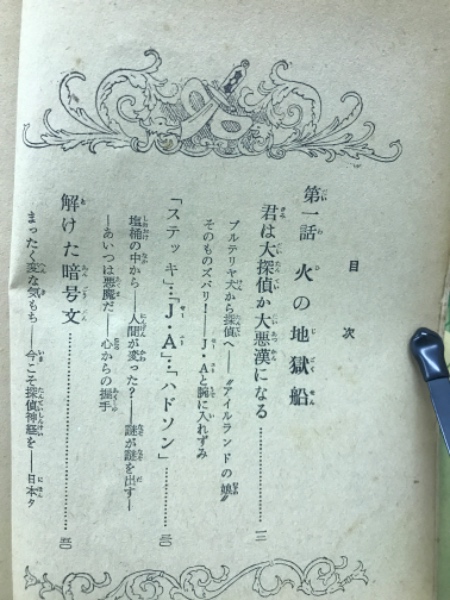 目次
第一話 火の地獄船
君は大探偵か大悪漢になる…………一三
ブルテリヤ犬から探偵へ――“アイルランドの娘”
そのものズバリ!――J・Aと腕に入れずみ
「ステッキ」…「J・A」…「ハドソン」…………三〇
塩桶の中から――人間が変った?――謎が謎を出す――
――あいつは悪魔だ――心からの握手
解けた暗号文…………五〇
まったく変な気もち――今こそ探偵神経を――日本タ